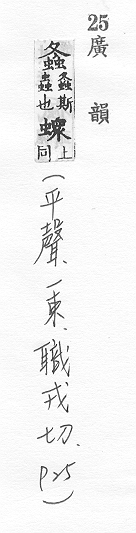 25廣韻
螽
螽斯
蟲也
𧑄
上
同
(平聲、一東、職戎切、P25)